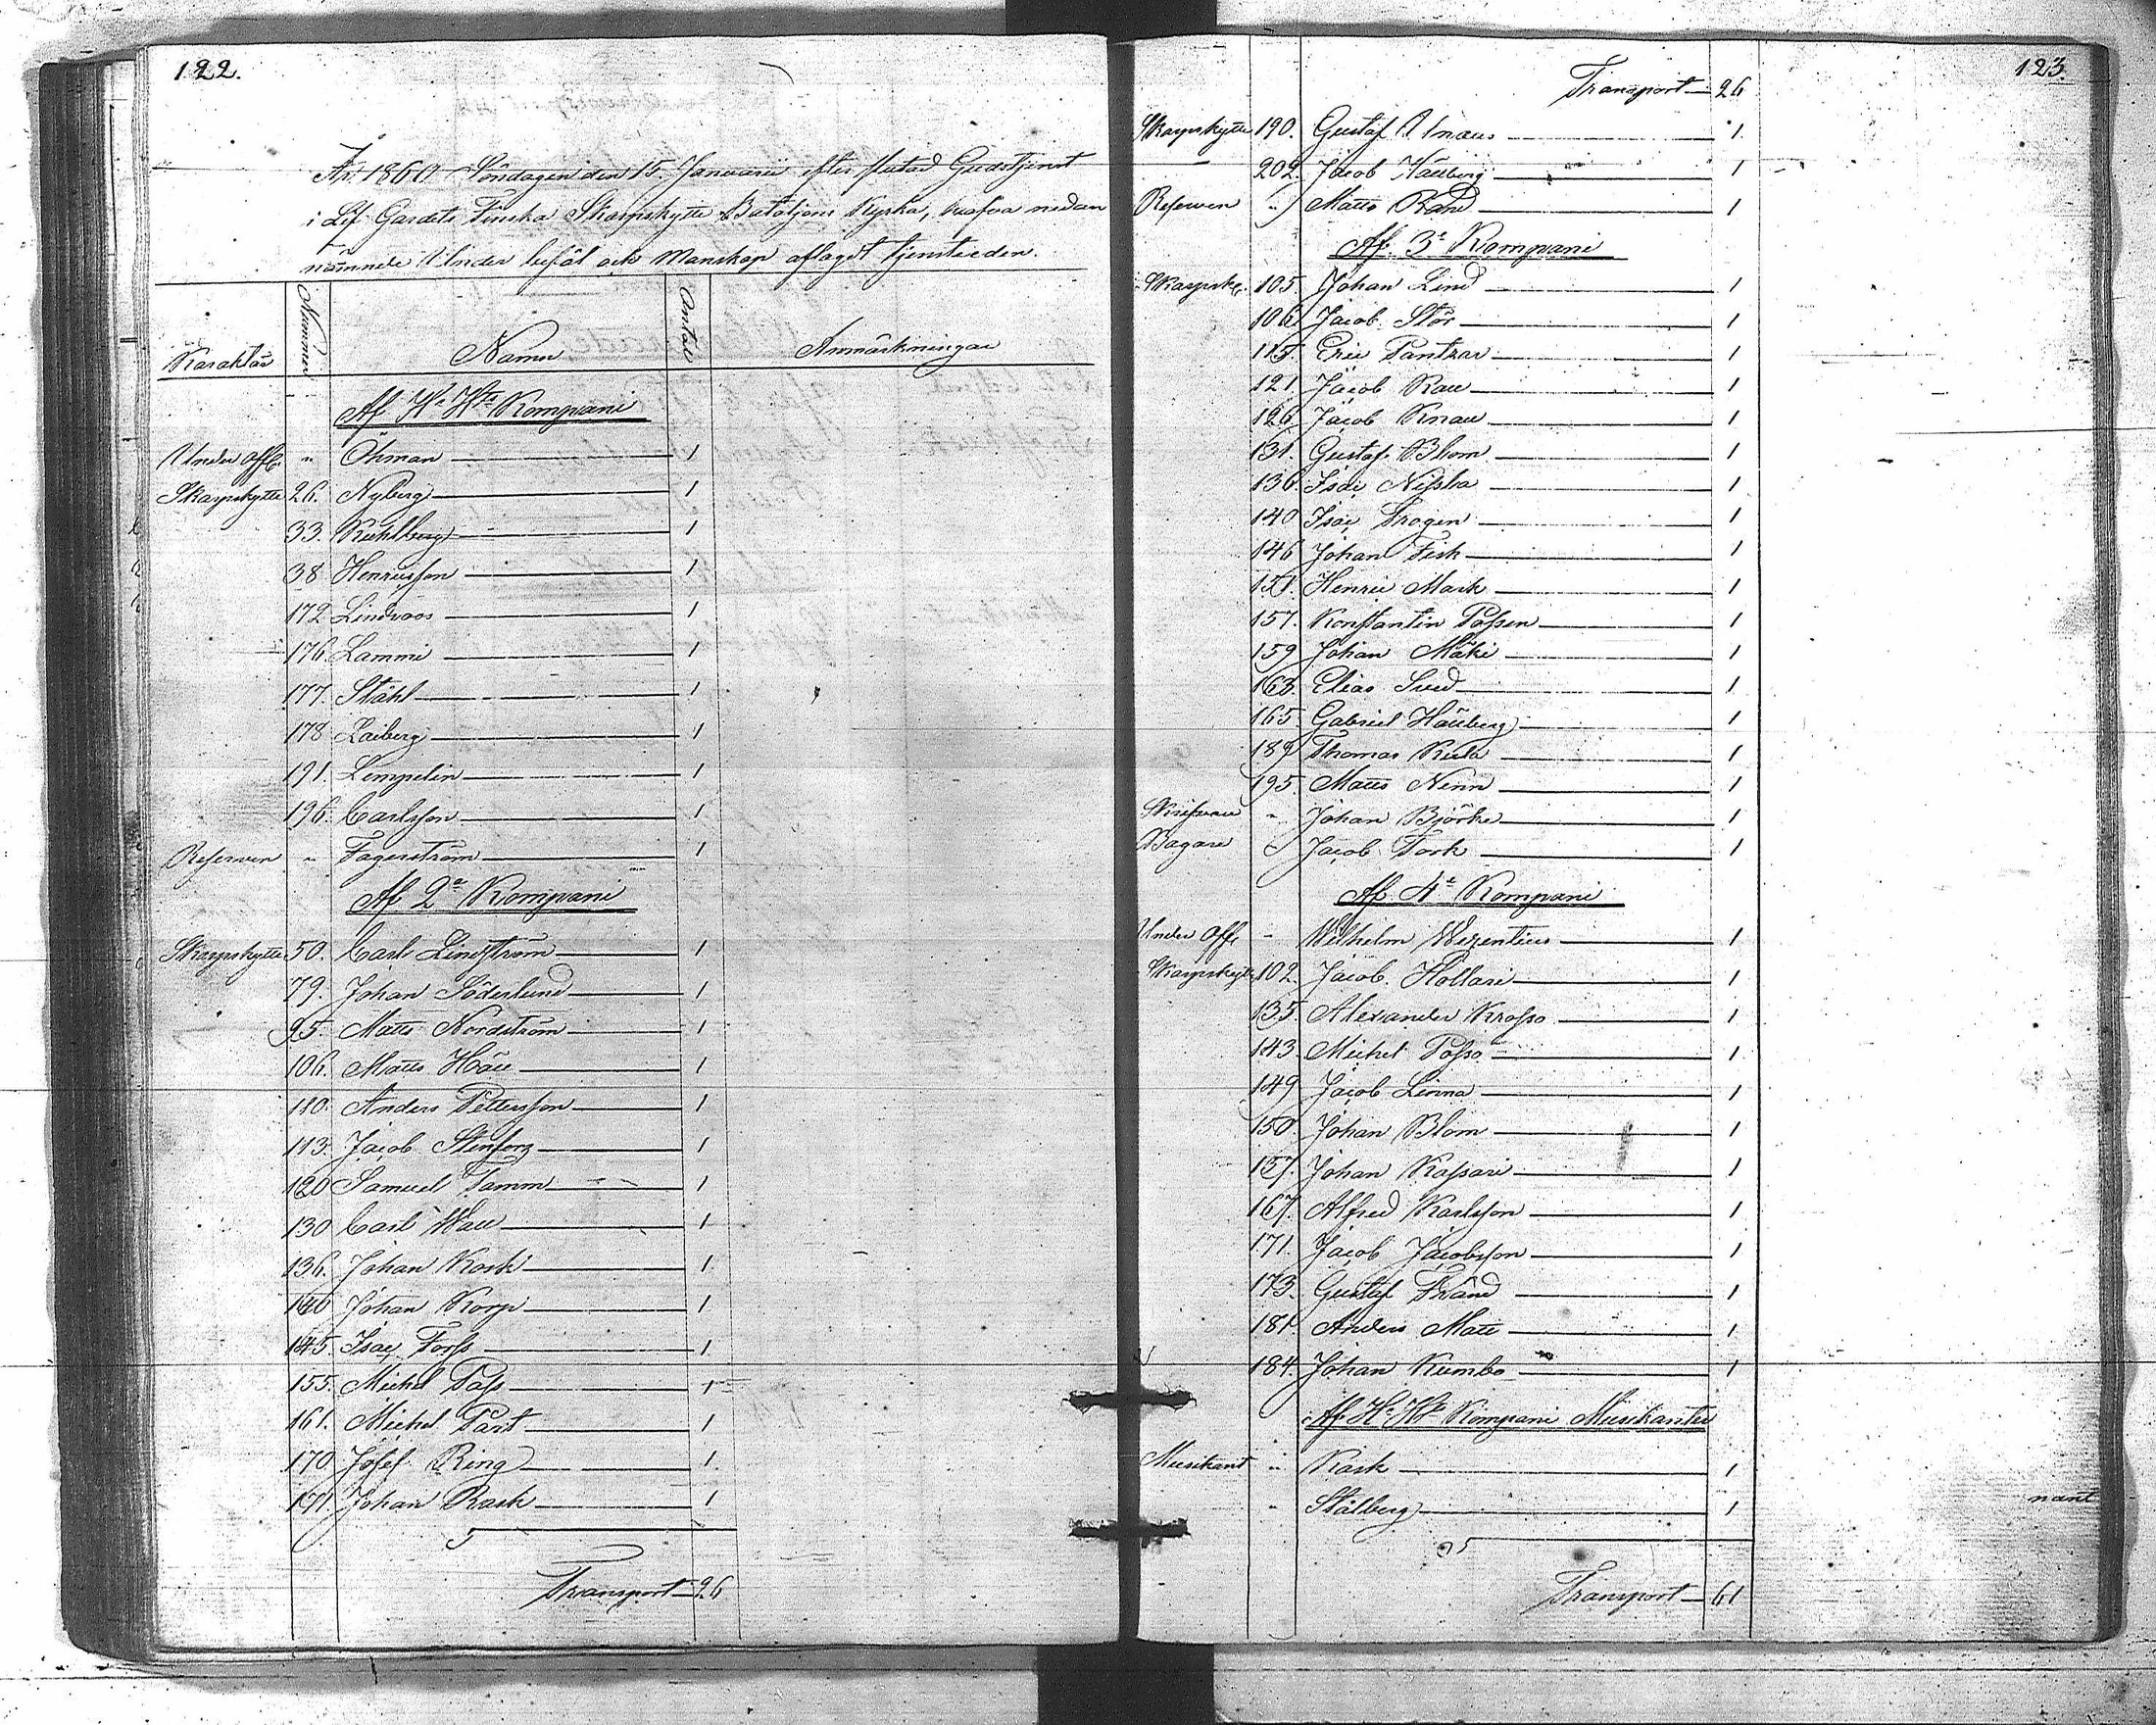 122.
År 1860 Söndagen den 15 Januarii efter slutad Gudstjenst
i Lif Gardets Finska Skarpskytte Bataljons Kyrka, hafva nedan
nämnde Under befäl och Manskap aflagt tjensteeden.
Karakter Nummer Namn Antal Anmärkningar
Af Kompani
Under Offc. " Öhman 1
Skarpskytte 26. Nyberg 1
33. 1
38. Henricsson 1
172 Lindroos 1
176. Lammi 1
177. Ståhl 1
178 Laiberg 1
191. Lempelin 1
196. Carlsson 1
Reserven " Fagerström 1
Af 2a Kompani
Skarpskytte 50. Carl Lindström 1
79. Johan Söderlund 1
95. Matts Nordström 1
106. Matts 1
110. Anders Pettersson 1
113. Jacob 1
120 Samuel Tamm 1
130 Carl 1
136. Johan Kosk 1
140 Johan Korp 1
145. Isac Forss 1
155. Michel Pass 1
161. Michel Part 1
170 Josef Ring 1
171. Johan Rask 1
Transport 26
123.
Transport 26
Skarpskytte 190. Gustaf 1
202. Jacob 1
Reserven " Matts Rand 1
Af 3e Kompani
Skarpsk. 105. Johan Lind 1
106 Jacob Stör 1
115. Eric Pantzar 1
121. Jacob Rau 1
126 Jacob Knau 1
131. Gustaf Blom 1
136. Isac Nisska 1
140 Isac Trogen 1
146 Johan Fisk 1
151. Henric Mark 1
157. Konstantin Possen 1
159 Johan Mäki 1
163. Elias 1
165. Gabriel 1
189 Thomas 1
195. Matts Ninn 1
Skrifvare " Johan Björke 1
Bagare " Jacob Tork 1
Af 4e Kompani
Under Off. " Wilhelm 1
Skarpskytt. 102. Jacob Hollari 1
135. Alexander Krosso 1
143. Michel Posso 1
149 Jacob Linna 1
150. Johan Blom 1
157. Johan Kassari 1
167. Alfred Karlsson 1
171. Jacob Jacobsson 1
173. Gustaf Frånd 1
181 Anders 1
184. Johan Kumbo 1
Af Kompani Musikanter
Musikant " Kask 1
" Stålberg 1
Transport 61
nant